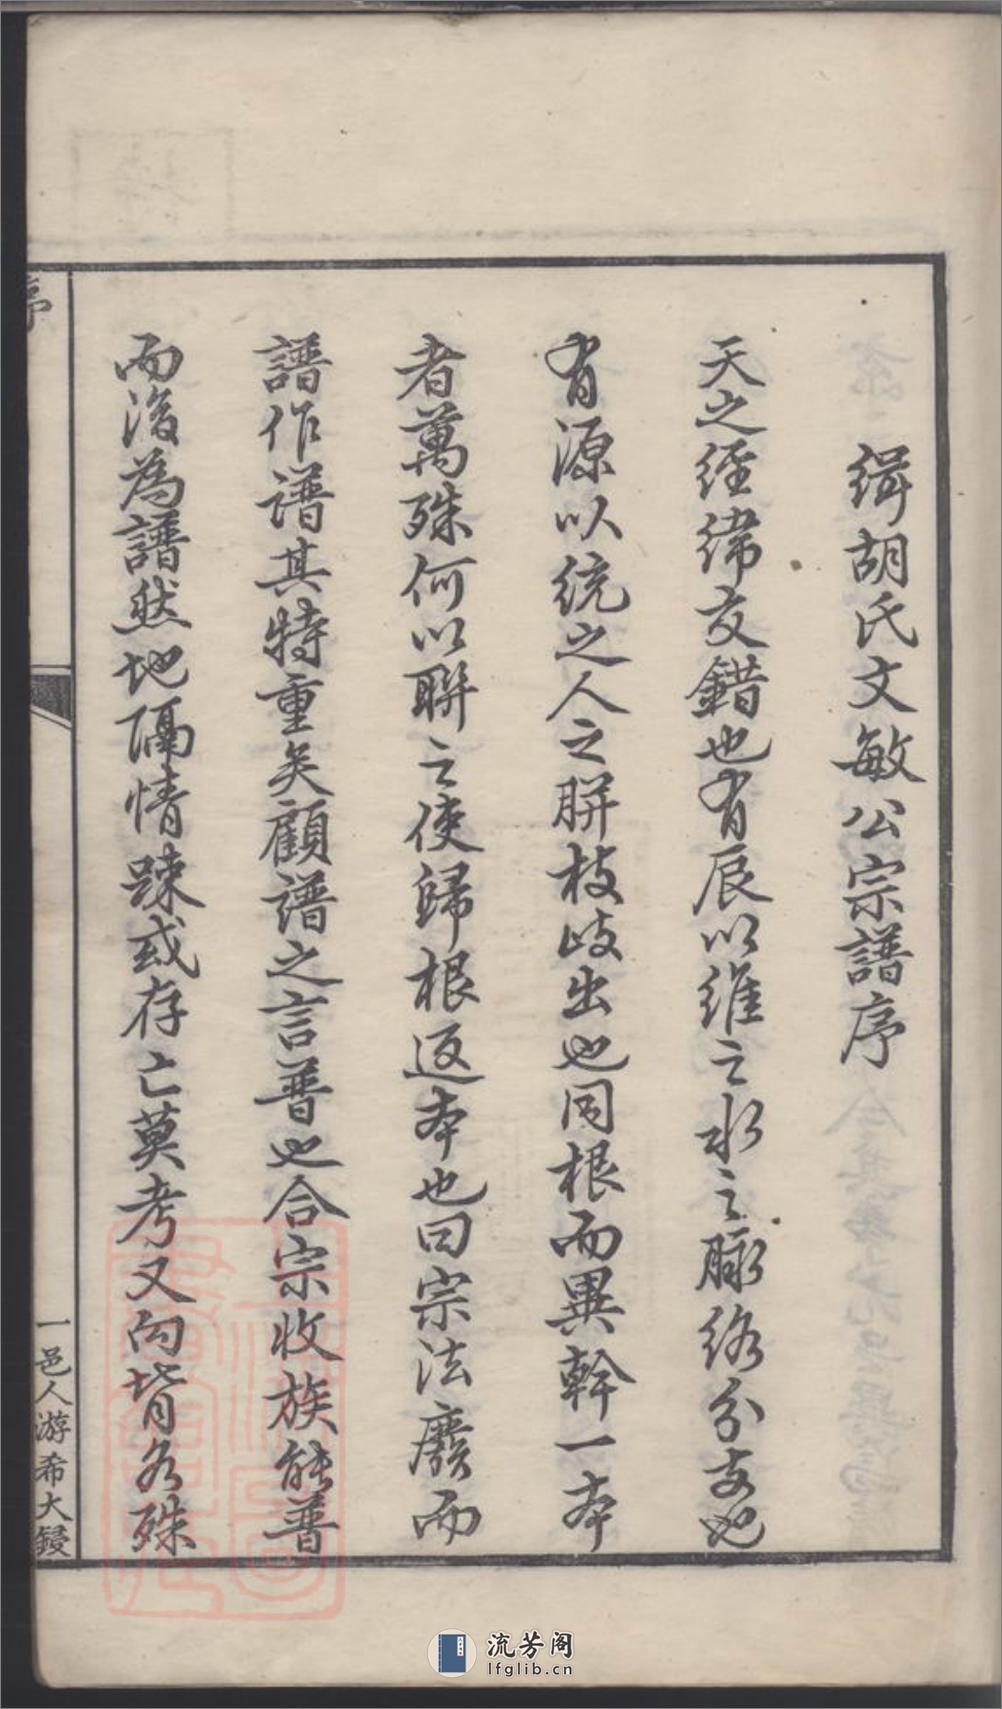 緝胡氏文敏公宗譜序
天之經緯交錯也有辰以維之水之脉絡分支也
有源以統之人之駢枝歧出也同根而異幹一本
者萬殊何以聯之使歸根返本也曰宗法廢而
譜作譜其特重矣顧譜之言普也合宗收族能普
而後為譜然地隔情踈或存亡莫考又向背各殊
序
一邑人游希大鋟
流芳阁
lfglib.cn